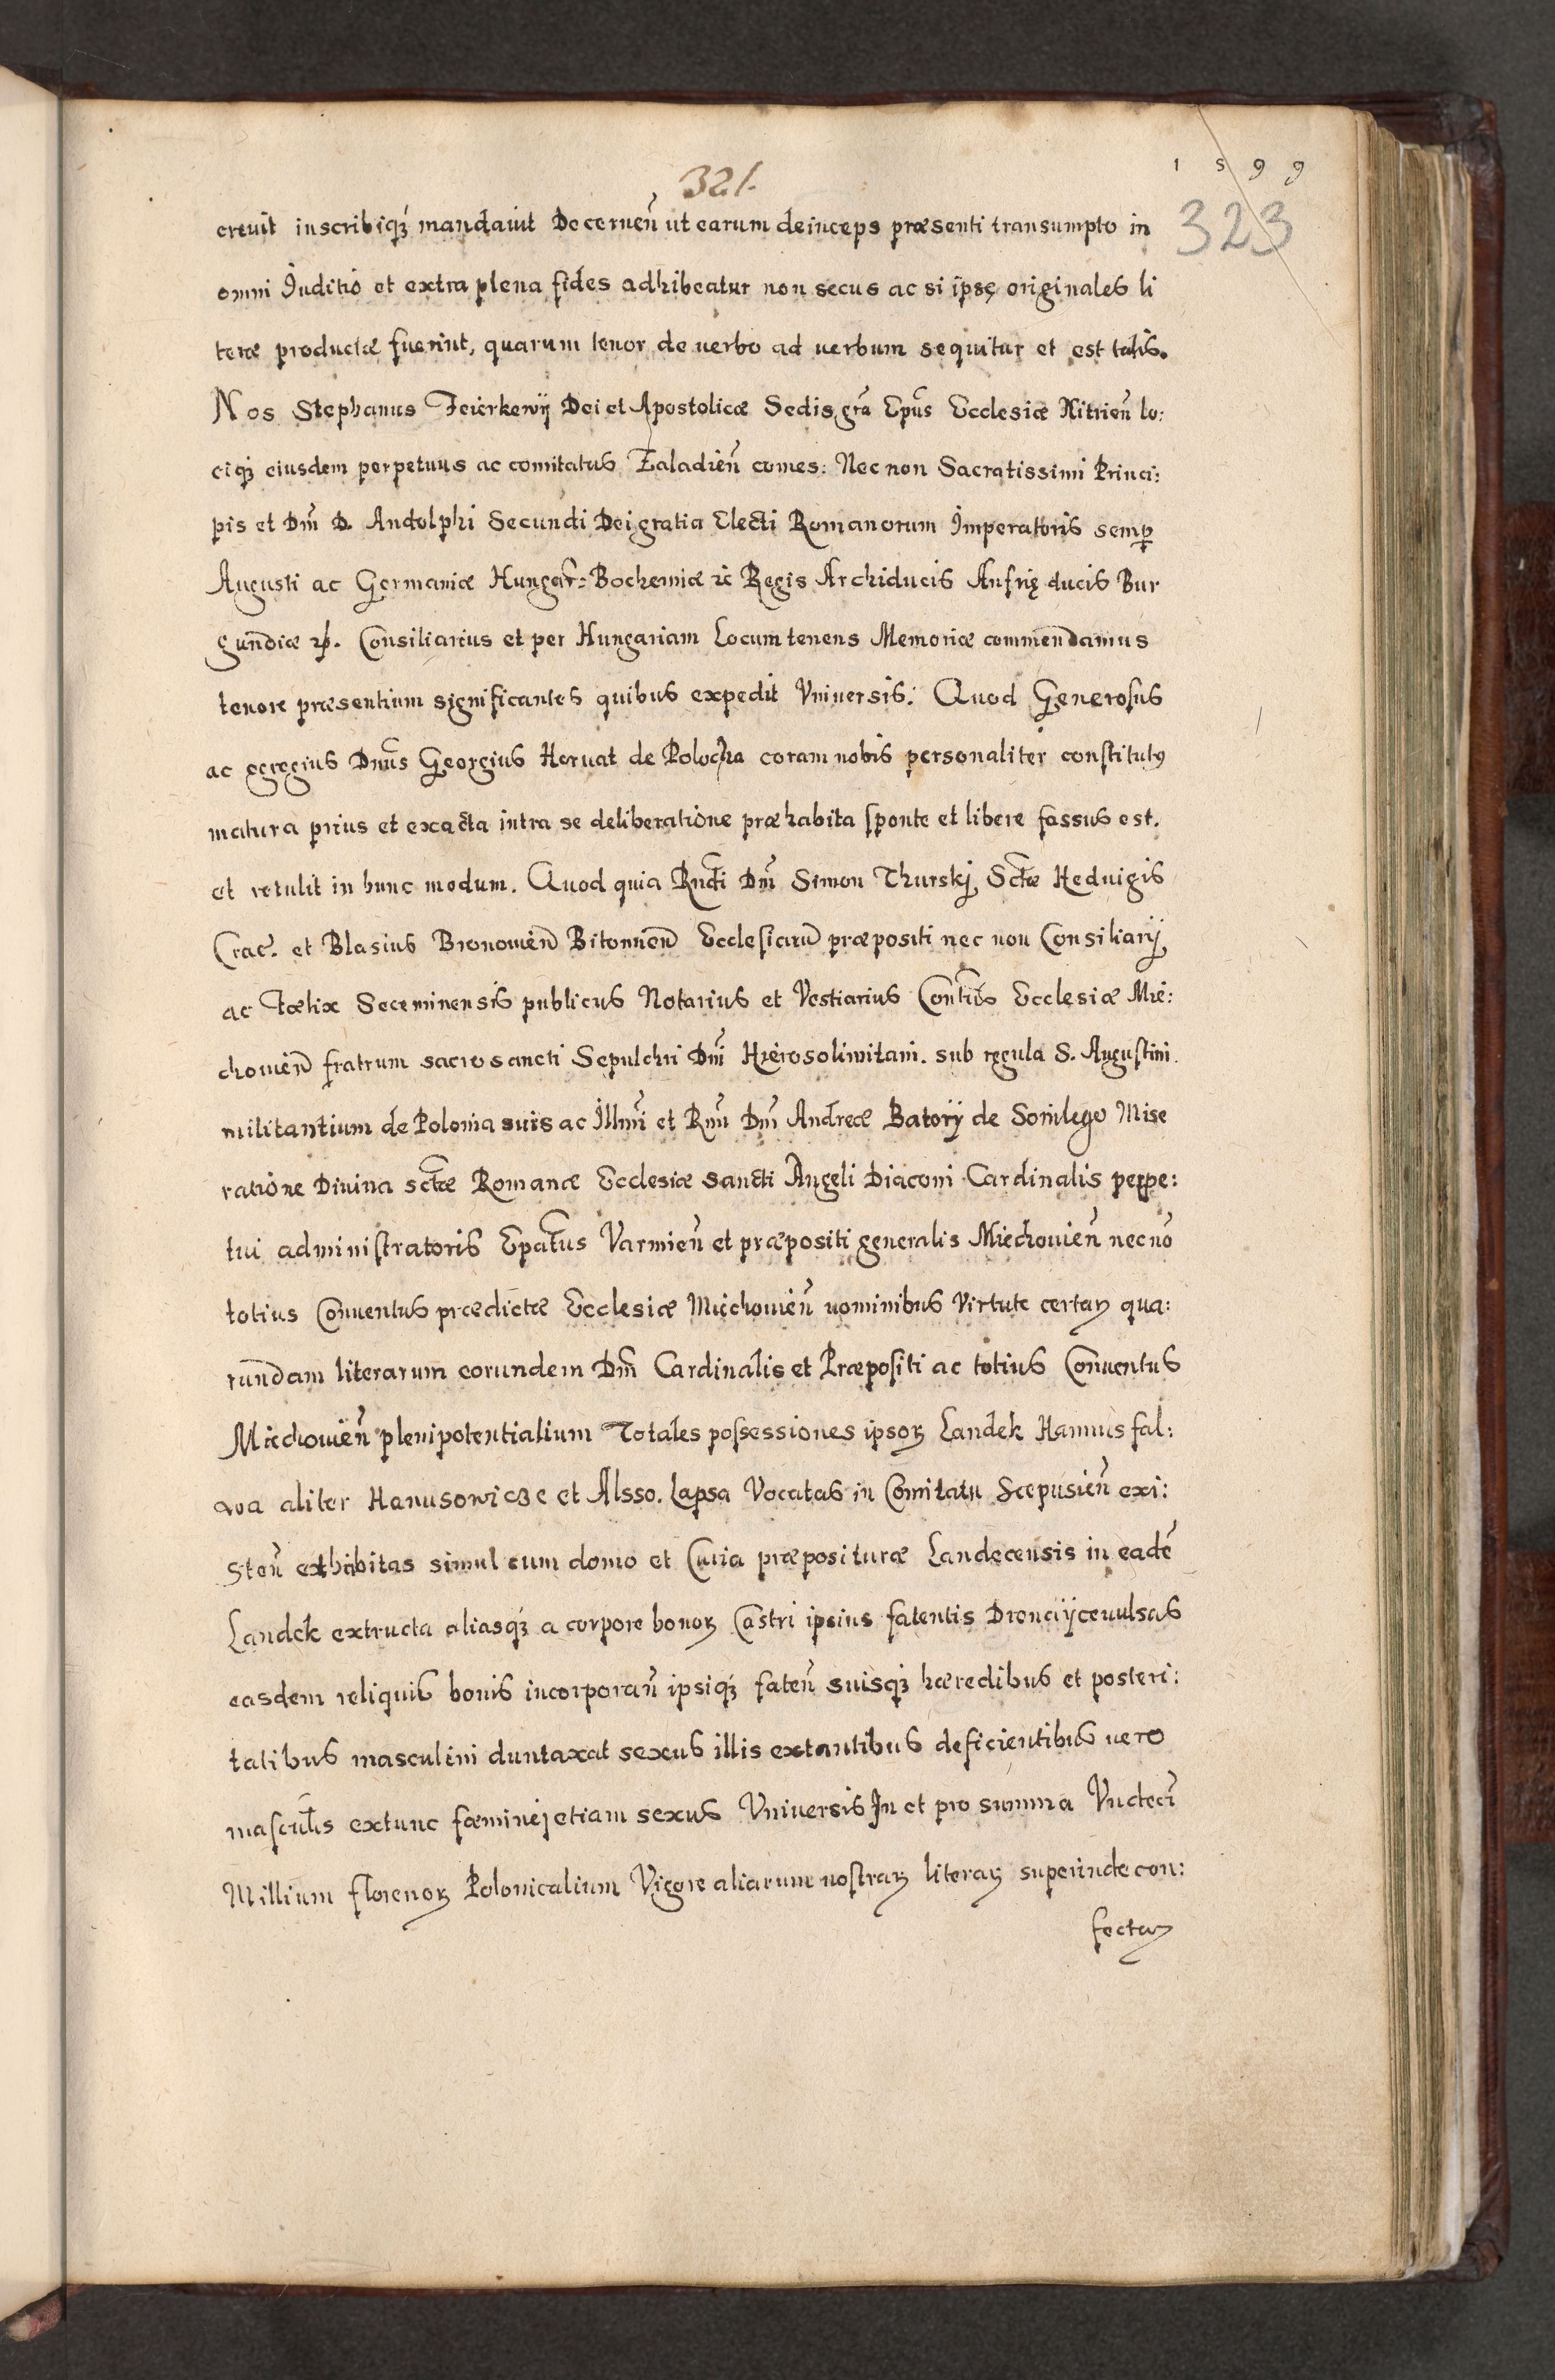 1 5 9 9
321.
323
crevit inscribiq́ꝫ mandavit Decerneñ ut earum deinceps præsenti transumpto in
omni Iuditio et extra plena fides adhibeatur non secus ac si ipsę originales li
teræ productæ fuerint, quarum tenor de verbo ad verbum sequitur et est talis.
Nos Stephanus Feierkewy Dei et Apostolicæ Sedis grã Epũs Ecclesiæ Nitrieñ lo:
ciq́ꝫ eiusdem perpetuus ac comitatus Zaladieñ comes: Nec non Sacratissimi Princi:
pis et Dñi D. Andolphi Secundi Dei gratia Electi Romanorum Imperatoris semꝑ
Augusti ac Germaniæ Hungar̃: Bochemiæ ꝛc̃ Regis Archiducis Ausrię ducis Bur
gundiæ ꝛꝑ. Consiliarius et per Hungariam Locumtenens Memoriæ commendamus
tenore præsentium significantes quibus expedit Vniversis: Quod Generosus
ac egregius Dnũs Georgius Horuat de Polocha coram nobis personaliter constitutꝰ
matura prius et exacta intra se deliberatione præhabita sponte et libere fassus est.
et retulit in hunc modum. Quod quia Rndĩ Dñi Simon Thurskj Sctæ Heduigis
Crac̃. et Blasius Bronovieñ Bitonneñ Ecclesiarũ præpositi nec non Consiliarij
ac Fœlix Seceminensis publicus Notarius et Vestiarius Contũs Ecclesiæ Mie:
chovieñ fratrum sacrosancti Sepulchri Dñi Hierosolimitani. sub regula S. Augustini
militantium de Polonia suis ac Illm̃i et Rm̃i Dñi Andreæ Batorÿ de Somlego Mise
ratione Divina sctæ Romanæ Ecclesiæ sancti Angeli Diaconi Cardinalis perpe:
tui administratoris Epatus Varmieñ et præpositi generalis Miechovieñ nec nõ
totius Conventus prædictæ Ecclesiæ Miechovieñ nominibus virtute certaꝝ qua:
rundam literarum eorundem Dñi Cardinalis et Præpositi ac totius Conventus
Miechovieñ plenipotentialium Totales possessiones ipsoꝝ Landek Hannus fal:
wa aliter Hanusowicze et Alsso. Lapsa Vocatas in Comitatu Scepusieñ exi:
steñ exhabitas simul cum domo et Curia præposituræ Landecensis in eadẽ
Landek extructa aliasq́ꝫ a corpore bonoꝝ Castri ipsius fatentis Dronciÿ cevulsas
easdem reliquis bonis incorporañ ipsiq́ꝫ fateñ suisq́ꝫ hæredibus et posteri:
tatibus masculini duntaxat sexus illis extantibus deficientibus vero
masculis extunc fæminej etiam sexus Vniversis In et pro summa Vndecĩ
Millium florenoꝝ Polonicalium Vigore aliarum nostraꝝ literaꝝ superinde con:
fectaꝝ